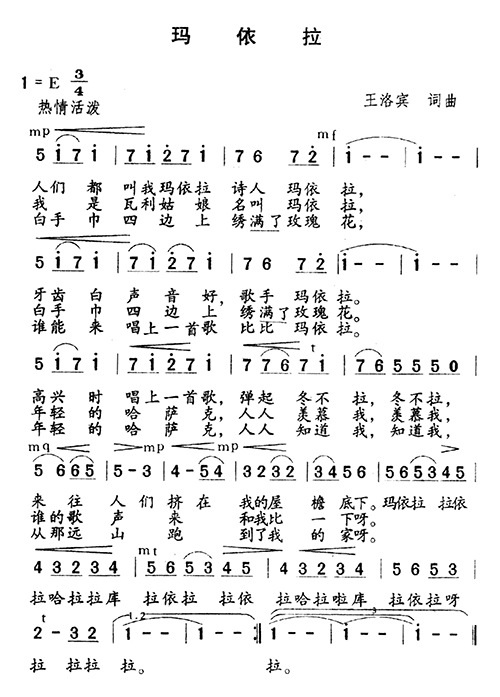 玛 依 拉
1 = E 3/4
热情活泼
王洛宾 词曲
mp mf
5 i 7 i | 7 i 2 7 i | 7 6 7 2 | i - - | i - - |
人们 都 叫我玛依拉 诗人 玛依 拉,
我 是 瓦利姑 娘 名叫 玛依 拉,
白手 巾 四边 上 绣满了玫瑰 花,
5 i 7 i | 7 i 2 7 i | 7 6 7 2 | i - - | i - - |
牙齿 白 声 音 好, 歌手 玛依 拉。
白手 巾 四边 上 绣满了玫瑰 花。
谁能 来 唱上一首歌 比比 玛依 拉。
t
5 i 7 i | 7 i 2 7 i | 7 7 6 7 i | 6 5 5 5 5 0
高兴 时 唱上一首歌, 弹起 冬不 拉, 冬不拉,
年轻 的 哈 萨 克, 人人 羡慕 我, 羡慕我,
年轻 的 哈 萨 克, 人人 知道 我, 知道我,
mq mp mp
5 6 6 5 | 5 - 3 | 4 - 5 4 | 3 2 3 2 | 3 3 2 1 | 5 6 5 3 4 5
来 往 人们 挤在 我的屋 檐 底下。玛依拉 拉依
谁的歌 声 来 和我比 一 下呀。
从那远 山 跑 到了我 的 家呀。
mt
4 3 2 3 4 | 5 6 5 3 4 5 | 4 3 2 3 4 | 5 6 5 3
拉哈拉拉库 拉依拉 拉依 拉哈拉啦库 拉依拉呀
t 1.2 3
2 - 3 2 | 1 - - | 1 - - :‖ 1 - - | 1 - - | 1 - - ‖
拉 拉拉 拉。 拉。